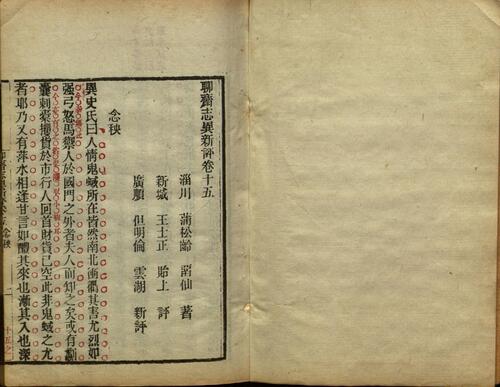 聊齋志異新評卷十五
淄川 蒲松齡 留仙 著
新城 王士正 貽上 評
廣順 但明倫 雲湖 新評
念秧
異史氏曰人情鬼蜮所在皆然南北衝衢其害尤烈如
强弓怒馬禦人於國門之外者夫人而知之矣或有劙
囊刺橐攫貨於市行人回首財貨已空此非鬼蜮之尤
者耶乃又有萍水相逢甘言如醴其來也漸其入也深